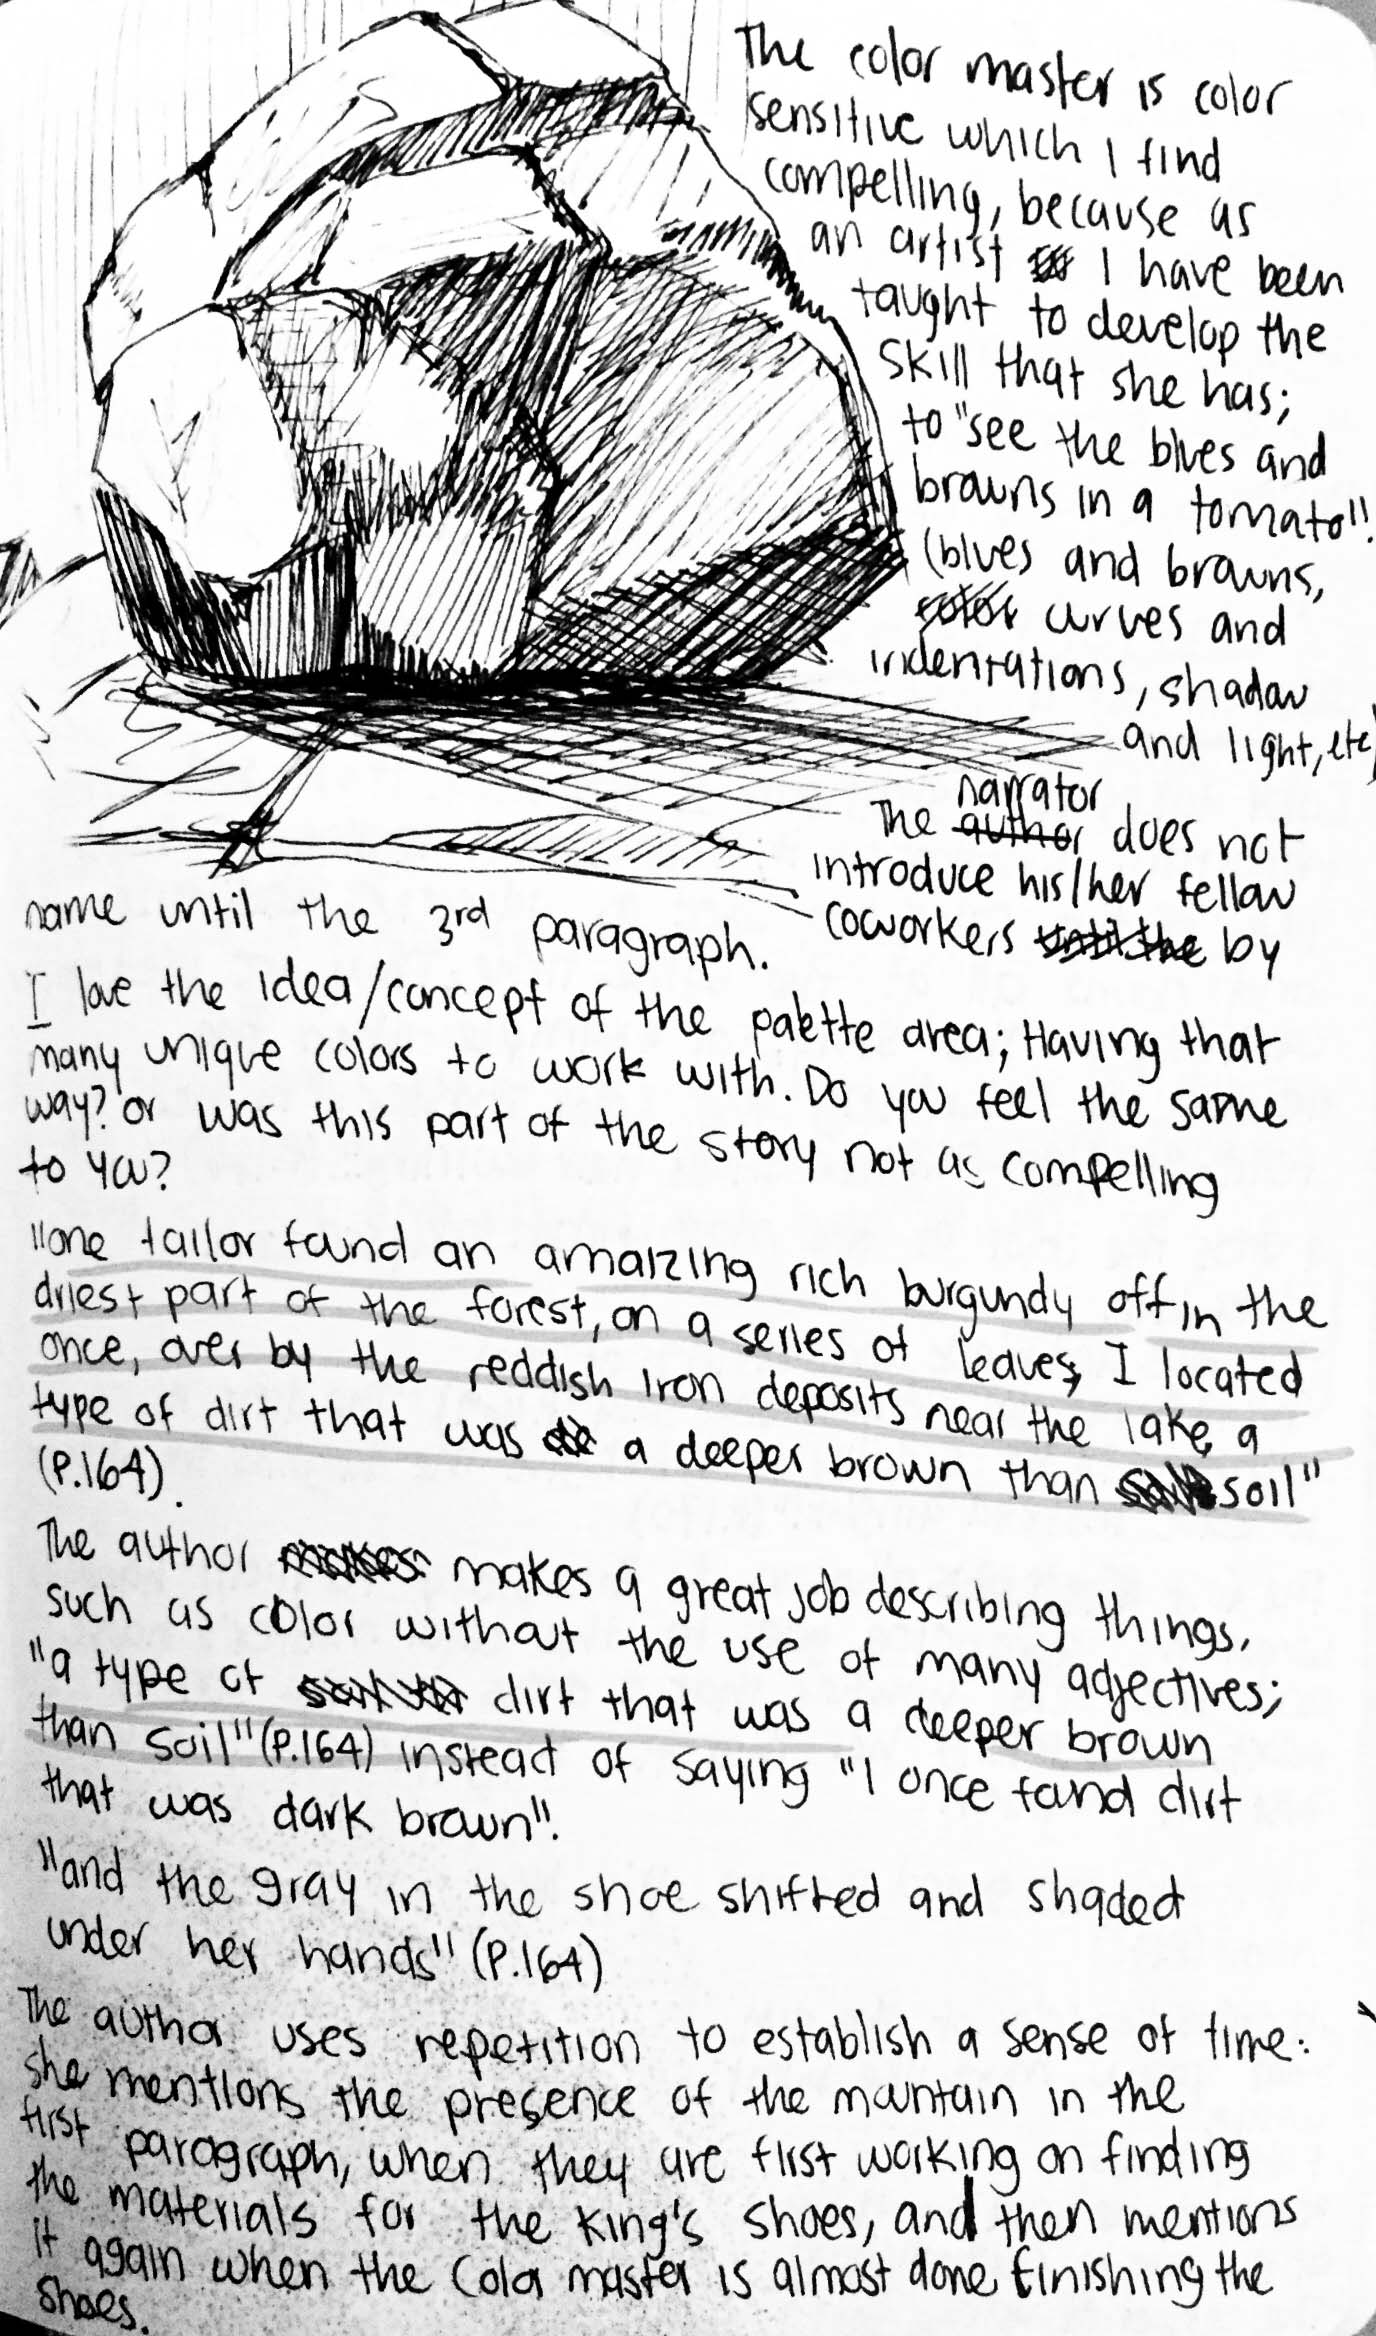 The color master is color
sensitive which I find
compelling, because as
an artist I have been
taught to develop the
skill that she has;
to "see the blues and
browns in a tomato".
(blues and browns,
color curves and
indentations, shadow
and light, etc)
narrator
The author does not
introduce his/her fellow
coworkers until the by
name until the 3rd paragraph.
I love the idea/concept of the palette area; Having that
many unique colors to work with. Do you feel the same
way? or was this part of the story not as compelling
to you?
"one tailor found an amaizing rich burgundy off in the
driest part of the forest, on a series of leaves, I located
once, over by the reddish iron deposits near the lake, a
type of dirt that was a deeper brown than soil"
(P.164).
The author makes makes a great job describing things,
such as color without the use of many adjectives;
"a type of dirt that was a deeper brown
than soil" (P.164) instead of saying "I once found dirt
that was dark brown".
"and the gray in the shoe shifted and shaded
under her hands" (P.164)
The author uses repetition to establish a sense of time:
she mentions the presence of the mountain in the
first paragraph, when they are first working on finding
the materials for the King's shoes, and then mentions
it again when the Color master is almost done finishing the
shoes.